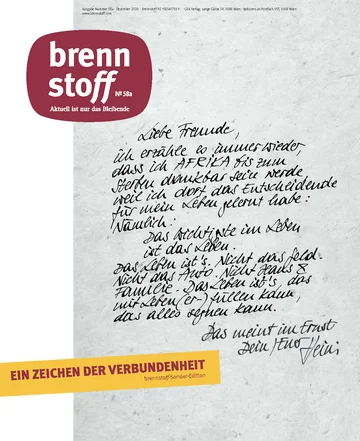 brenn
stoff
Nº 58a
Aktuell ist nur das Bleibende
Liebe Freunde,
ich erzähle es immer wieder,
dass ich AFRIKA bis zum
Sterben dankbar sein werde,
weil ich dort das Entscheidende
für mein Leben gelernt habe:
Nämlich:
Das Wichtigste im Leben
ist das Leben.
Das Leben ist's. Nicht das Geld.
Nicht das Auto. Nicht Haus &
Familie. Das Leben ist's, das
mit Leben (er-)füllen kann,
das alles segnen kann.
Das meint im Ernst
Dein/Euer Heini
EIN ZEICHEN DER VERBUNDENHEIT
brennstoff-Sonder-Edition